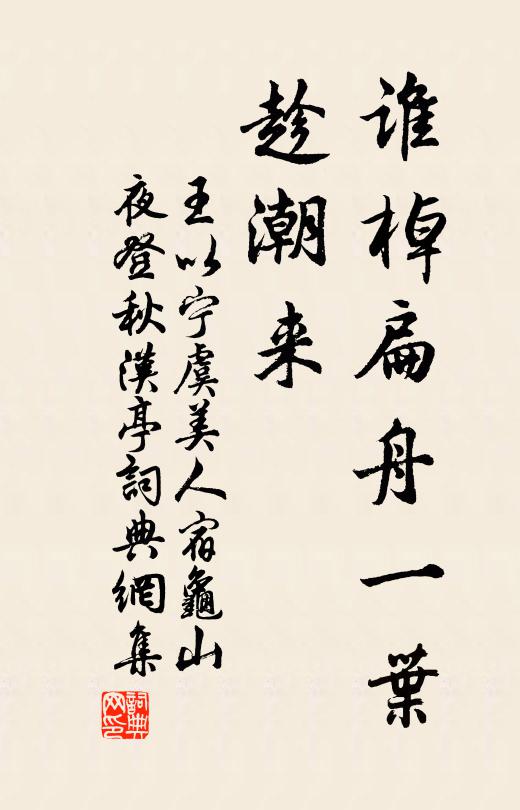 谁棹扁舟一葉
趁潮来
王以宁虞美人宿龜山
夜登秋漢亭詞典網集
詞典网印